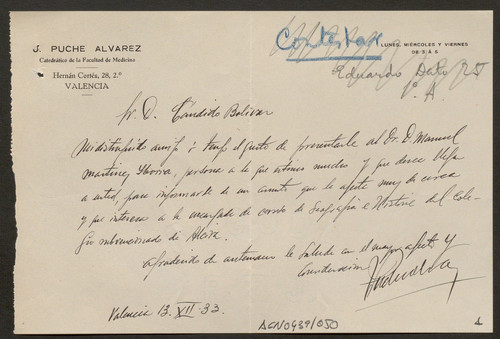 J. PUCHE ALVAREZ
Catedrático de la Facultad de Medicina
Hernán Cortés, 28, 2.º
VALENCIA
Contestar
LUNES, MIÉRCOLES Y VIERNES
DE 3 A 5
Eduardo Dato 25
1º A
Sr. D. Cándido Bolivar
Mi distinguido amigo: tengo el gusto de presentarle al Dr. D. Manuel
Martinez Iborra, persona a la que estimo mucho y que desea
a usted, para informarle de un asunto que le afecta muy de cerca
y que interesa a la de Geografia e Historia del Cole-
gio subvencionado de Alcira.
Agradecido de antemano le saluda con el mayor afecto y
consideracion
Valencia 13. XII. 33
ACN0439/050